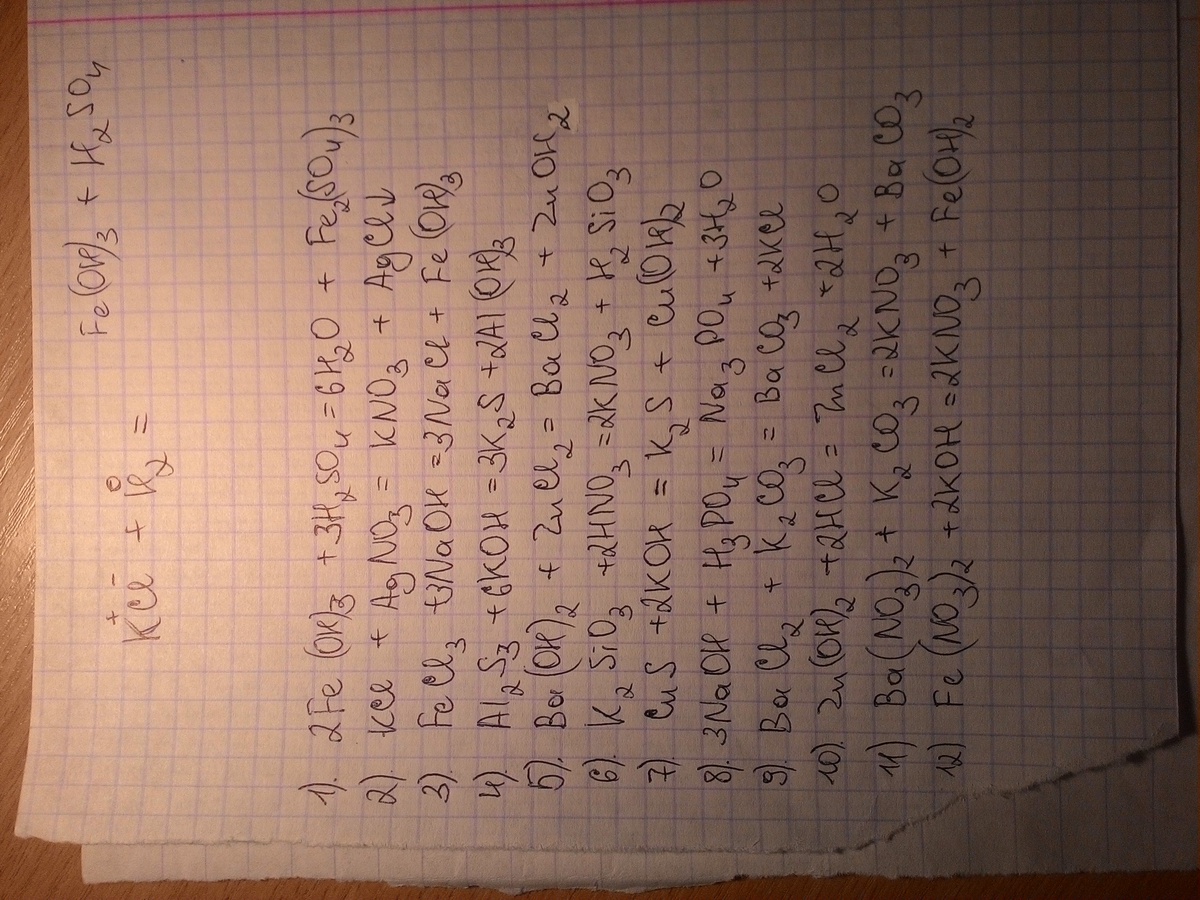 Fe(OH)₃ + H₂SO₄
K⁺Cl⁻ + K₂⁰ =
1). 2Fe(OH)₃ + 3H₂SO₄ = 6H₂O + Fe₂(SO₄)₃
2). KCl + AgNO₃ = KNO₃ + AgCl↓
3). FeCl₃ + 3NaOH = 3NaCl + Fe(OH)₃
4) Al₂S₃ + 6KOH = 3K₂S + 2Al(OH)₃
5). Ba(OH)₂ + ZnCl₂ = BaCl₂ + ZnOH₂
6). K₂SiO₃ + 2HNO₃ = 2KNO₃ + H₂SiO₃
7) CuS + 2KOH = K₂S + Cu(OH)₂
8). 3NaOH + H₃PO₄ = Na₃PO₄ + 3H₂O
9). BaCl₂ + K₂CO₃ = BaCO₃ + 2KCl
10). Zn(OH)₂ + 2HCl = ZnCl₂ + 2H₂O
11) Ba(NO₃)₂ + K₂CO₃ = 2KNO₃ + BaCO₃
12) Fe(NO₃)₂ + 2KOH = 2KNO₃ + Fe(OH)₂